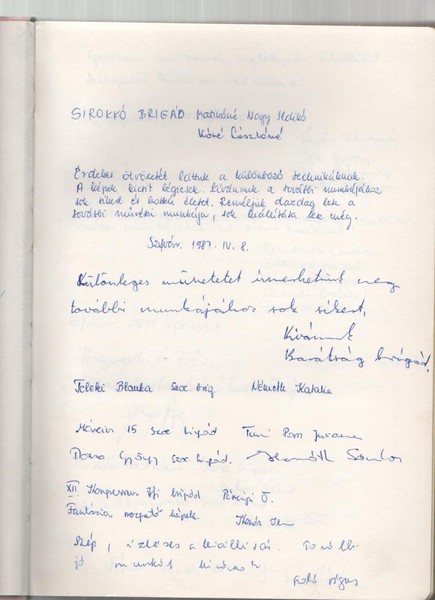 SIROKKÓ BRIGÁD Nagy Ildikó
Kóré Lászlóné
Érdekes ötvözetét láttuk a különböző technikáknak.
A képek kicsit légiesek. Kívánunk a további munkájához
sok sikert és hosszú életet. Reméljük gazdag lesz a
további művészi munkája, sok kiállítása lesz még.
Szfvár. 1987. IV. 8.
Különleges ismerhettünk meg
további munkájához sok sikert,
Kívánunk
Barátság brigád.
Teleki Blanka szoc. brig. Németh Katalin
Március 15 szoc brigád
Dózsa György szoc. brigád. Sándor
XII. Kongresszus Ifj brigád
Fantázia mozgató képek
Szép, ízléses a kiállítás. További
jó munkát kívánok